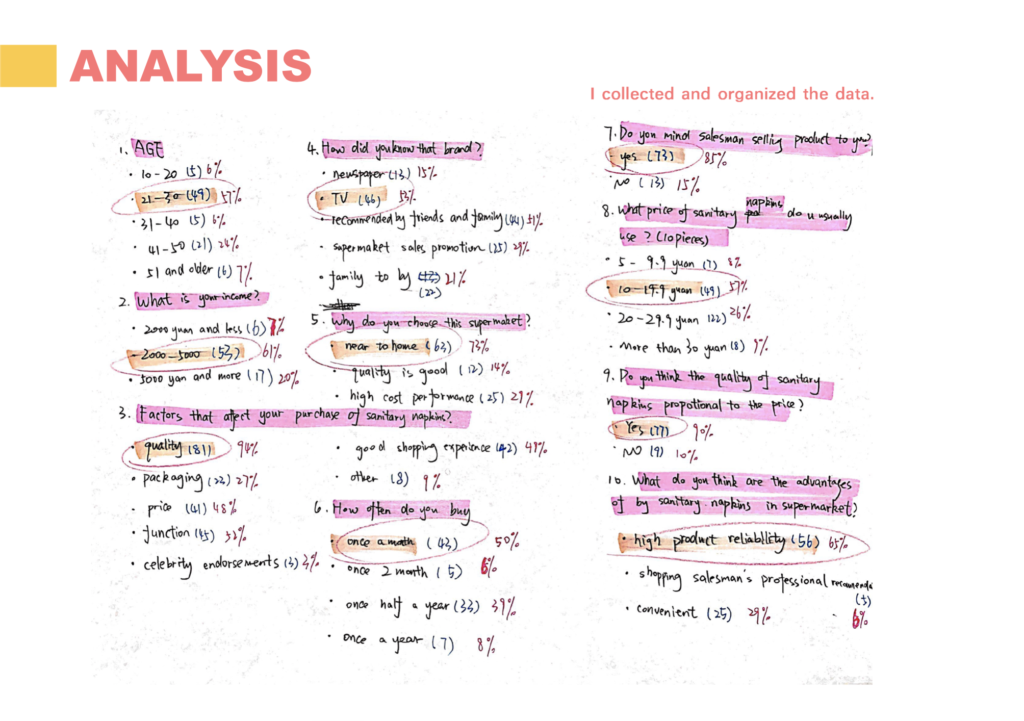 ANALYSIS
I collected and organized the data.
1. AGE
· 10-20 (5) 6%
· 21-30 (49) 57%
· 31-40 (5) 6%
· 41-50 (21) 24%
· 51 and older (6) 7%
2. What is your income?
· 2000 yuan and less (6) 7%
· 2000-5000 (53) 61%
· 5000 yan and more (17) 20%
3. Factors that afect your purchase of sanitary napkins?
· quality (81) 94%
· packaging (22) 27%
· price (41) 48%
· function (45) 52%
· celebrity endorsements (3) 3%
4. How did you know that brand?
· newspaper (13) 15%
· TV (46) 53%
· recommended by friends and family (44) 51%
· supermarket sales promotion (25) 29%
· family to by 21%
(22)
5. Why do you choose this supermaket?
· near to home (63) 73%
· quality is good (12) 14%
· high cost performance (25) 29%
· good shopping experience (42) 49%
· other (8) 9%
6. How often do you buy
· once a moth (43) 50%
· once 2 month (5) 6%
· once half a year (33) 39%
· once a year (7) 8%
7. Do you mind salesman selling product to you?
· yes (73) 85%
· NO (13) 15%
napkins
8. What price of sanitary do u usually
use? (10 pieces)
· 5-9.9 yuan (7) 8%
· 10-19.9 yuan (49) 57%
· 20-29.9 yuan (22) 26%
· more than 30 yuan (8) 9%
9. Do you think the quality of sanitary
napkins propotional to the price?
· Yes (77) 90%
· NO (9) 10%
10. What do you think are the advantages
of by sanitary napkins in supermarket?
· high product reliability (56) 65%
· shopping salesman's professional
(5)
· convenient (25) 29%
· 6%